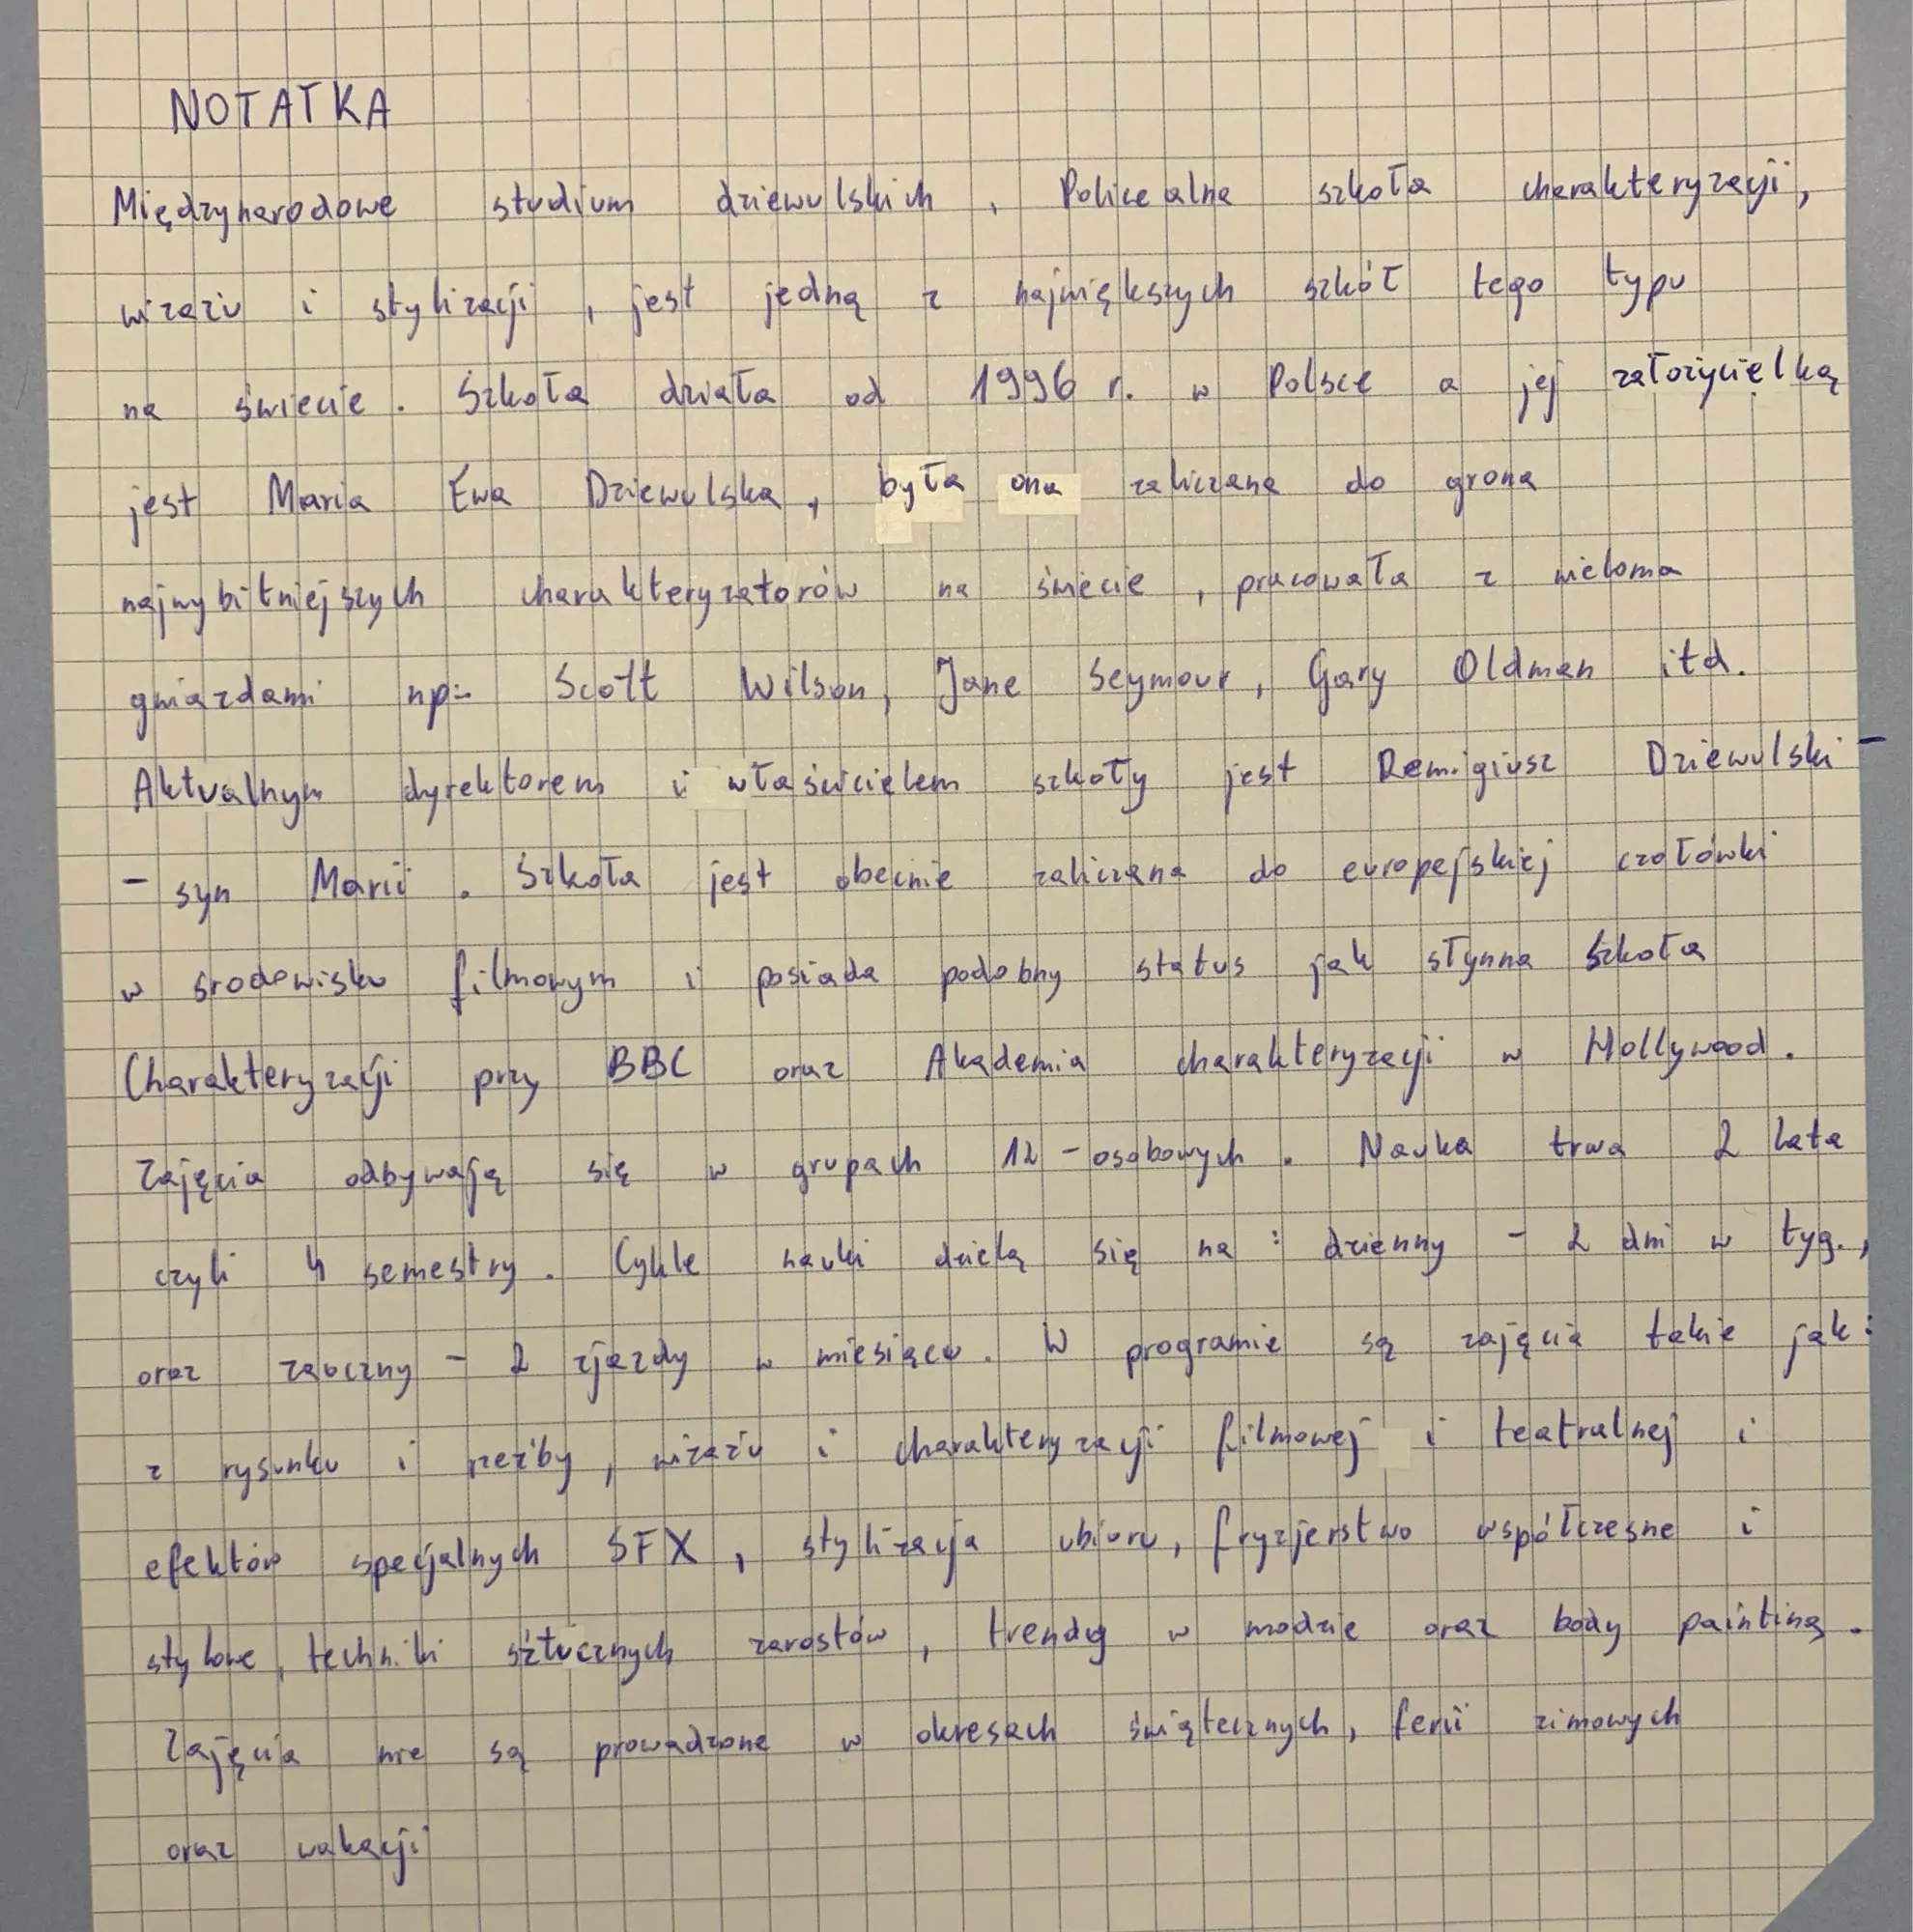 NOTATKA
Międzynarodowe studium dziewulskich, Policealna szkoła charakteryzacji,
wizażu i stylizacji, jest jedną z największych szkół tego typu
na świecie. Szkoła działa od 1996 r. w Polsce a jej założycielką
jest Maria Ewa Dziewulska, była ona zaliczana do grona
najwybitniejszych charakteryzatorów na świecie, pracowała z wieloma
gwiazdami np: Scott Wilson, Jane Seymour, Gary Oldman itd.
Aktualnym dyrektorem i właścicielem szkoły jest Remigiusz Dziewulski -
- syn Marii. Szkoła jest obecnie zaliczana do europejskiej czołówki
w środowisku filmowym i posiada podobny status jak słynna Szkoła
Charakteryzacji przy BBC oraz Akademia charakteryzacji w Hollywood.
Zajęcia odbywają się w grupach 12-osobowych. Nauka trwa 2 lata
czyli 4 semestry. Cykle nauki dzielą się na: dzienny - 2 dni w tyg.,
oraz zaoczny - 2 zjazdy w miesiącu. W programie są zajęcia takie jak:
z rysunku i rzeźby, wizażu i charakteryzacji filmowej i teatralnej i
efektów specjalnych SFX, stylizacja ubioru, fryzjerstwo współczesne i
stylowe, techniki sztucznych zarostów, trendy w modzie oraz body painting.
Zajęcia nie są prowadzone w okresach świątecznych, ferii zimowych
oraz wakacji